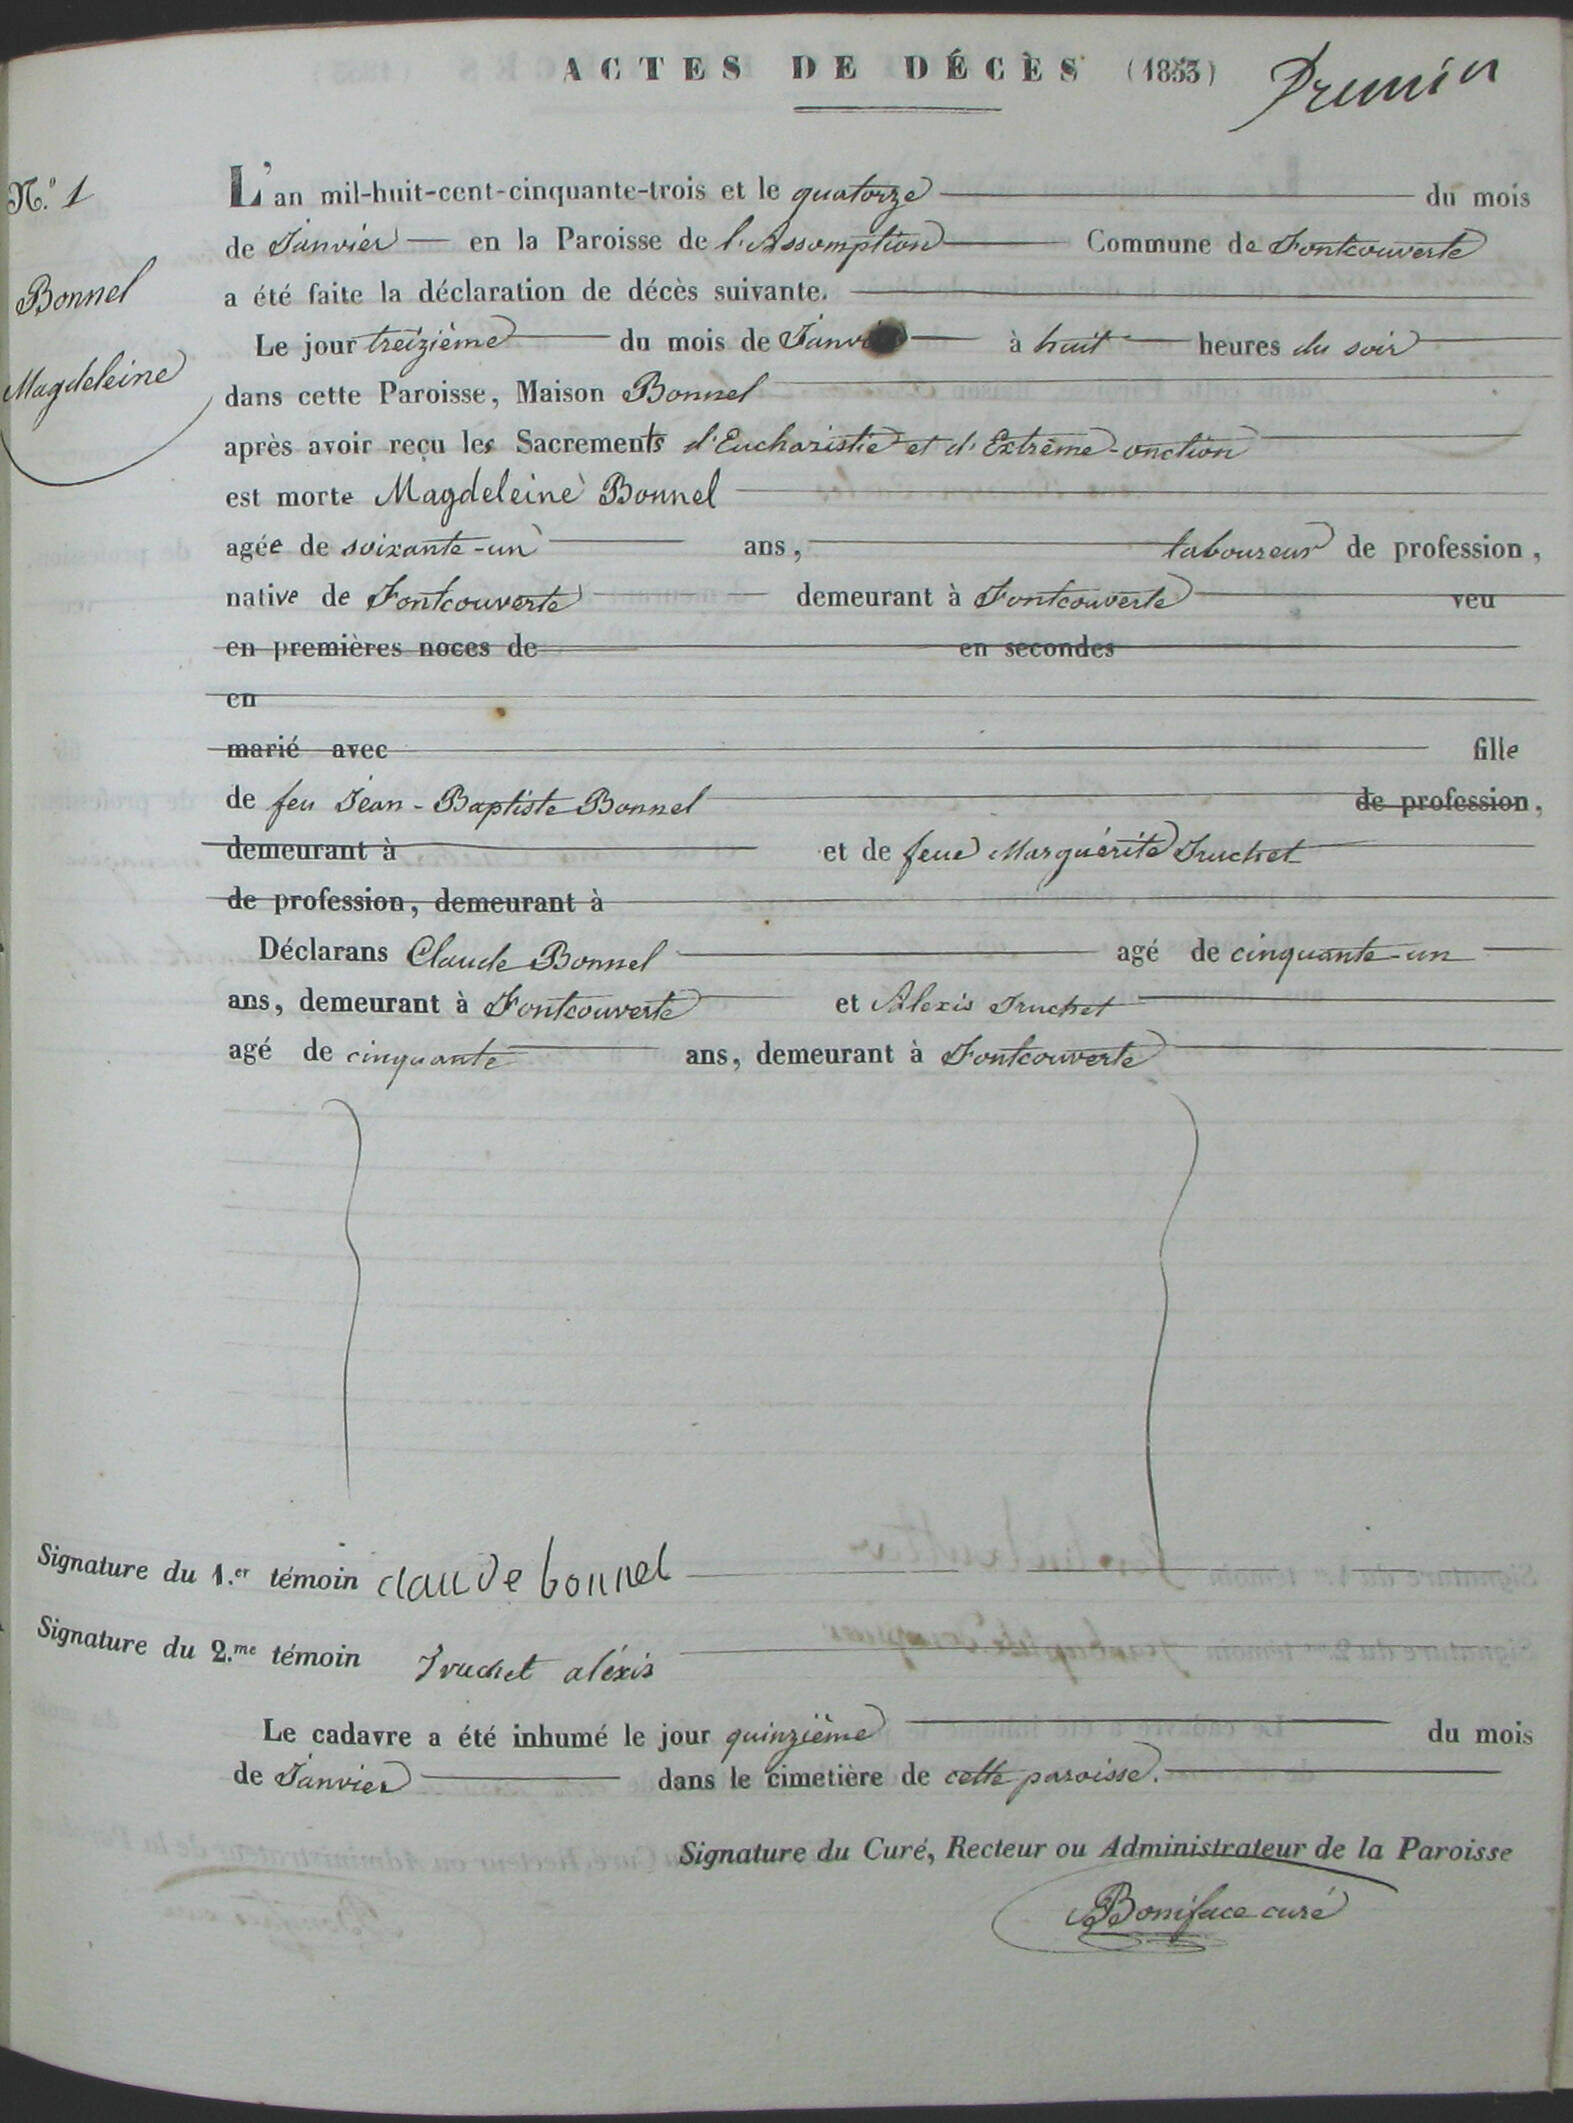 ACTES DE DÉCÈS (1853)
N.º 1
Bonnel
Magdeleine
L'an mil-huit-cent-cinquante-trois et le quatorze du mois
de Janvier en la Paroisse de l'Assomption Commune de Fontcouverte
a été faite la déclaration de décès suivante.
Le jour treizième du mois de Janvier à huit heures du soir
dans cette Paroisse, Maison Bonnel
après avoir reçu les Sacrements d'Eucharistie et d'Extrème-onction
est morte Magdeleine Bonnel
agée de soixante-un ans, laboureur de profession,
native de Fontcouverte demeurant à Fontcouverte veu
en premières noces de en secondes
en
marié avec fille
de feu Jean-Baptiste Bonnel de profession,
demeurant à et de feue Marguérite Truchet
de profession, demeurant à
Déclarans Claude Bonnel agé de cinquante-un
ans, demeurant à Fontcouverte et Alexis Truchet
agé de cinquante ans, demeurant à Fontcouverte
Signature du 1.er témoin claude bonnel
Signature du 2.me témoin Truchet aléxis
Le cadavre a été inhumé le jour quinzième du mois
de Janvier dans le cimetière de cette paroisse.
Signature du Curé, Recteur ou Administrateur de la Paroisse
Boniface curé